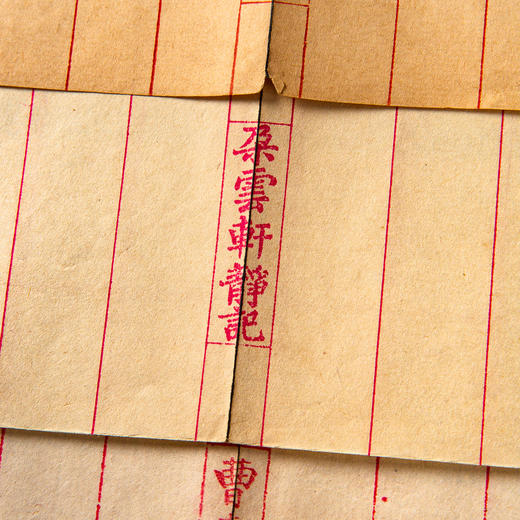 朶雲軒靜記
曹